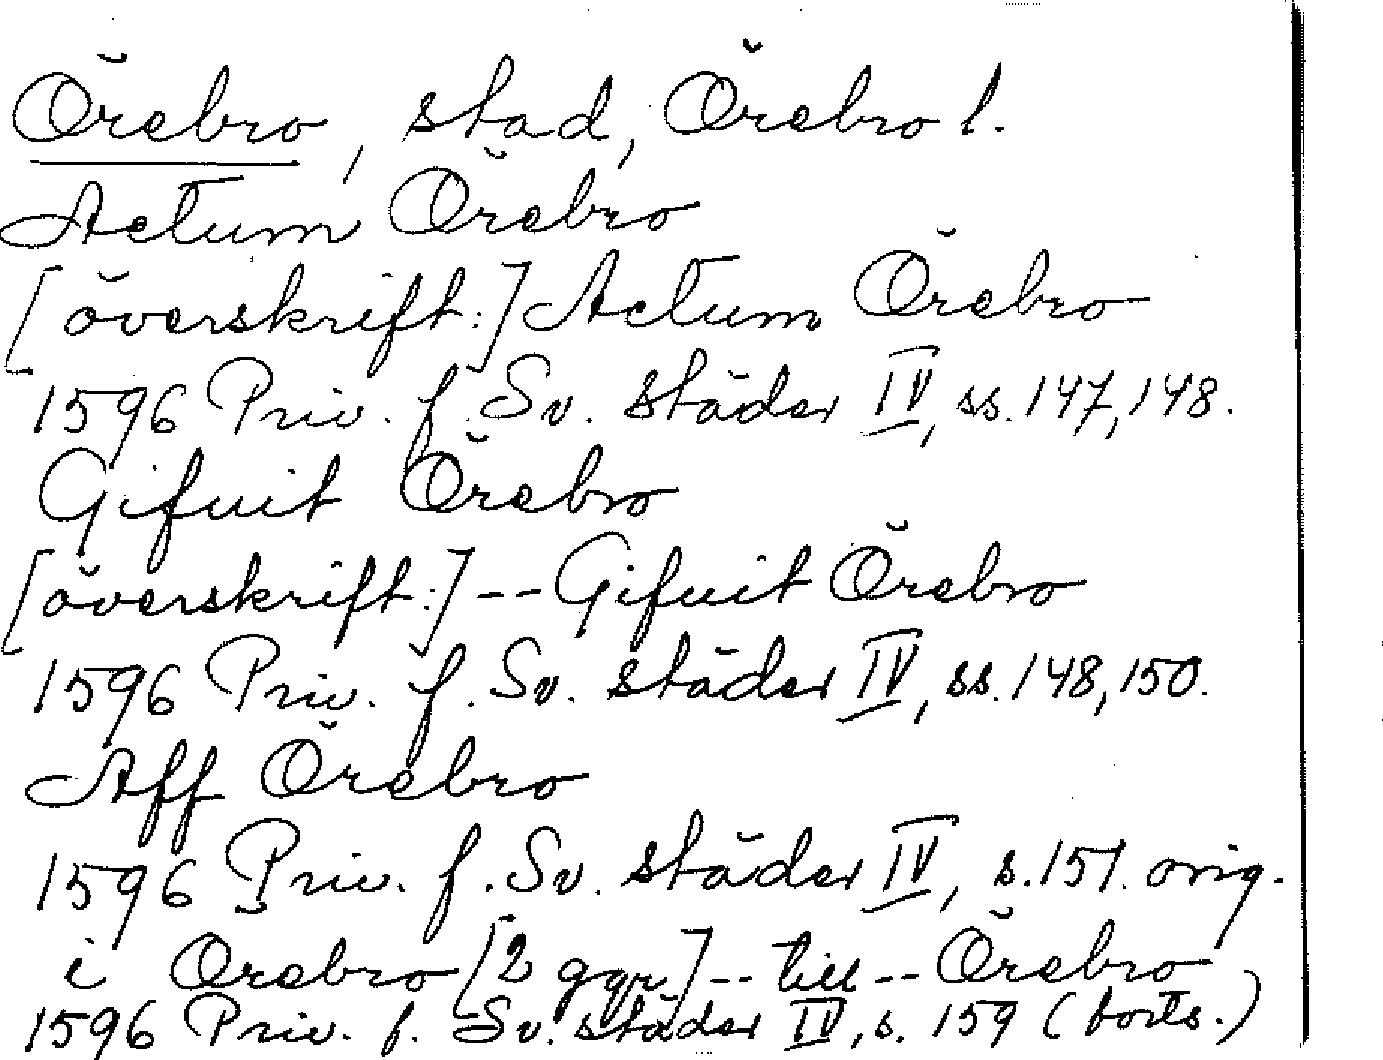 Örebro, stad, Örebro l.
Actum Örebro
[överskrift:] Actum Örebro
1596 Priv. f. Sv. städer IV, ss. 147, 148.
Gifuit Örebro
[överskrift:] -- Gifuit Örebro
1596 Priv. f. Sv. städer IV, ss. 148, 150.
Aff Örebro
1596 Priv. f. Sv. städer IV, s. 151. orig.
i Örebro [2 ggr] -- till -- Örebro
1596 Priv. f. Sv. städer IV, s. 159 (forts.)